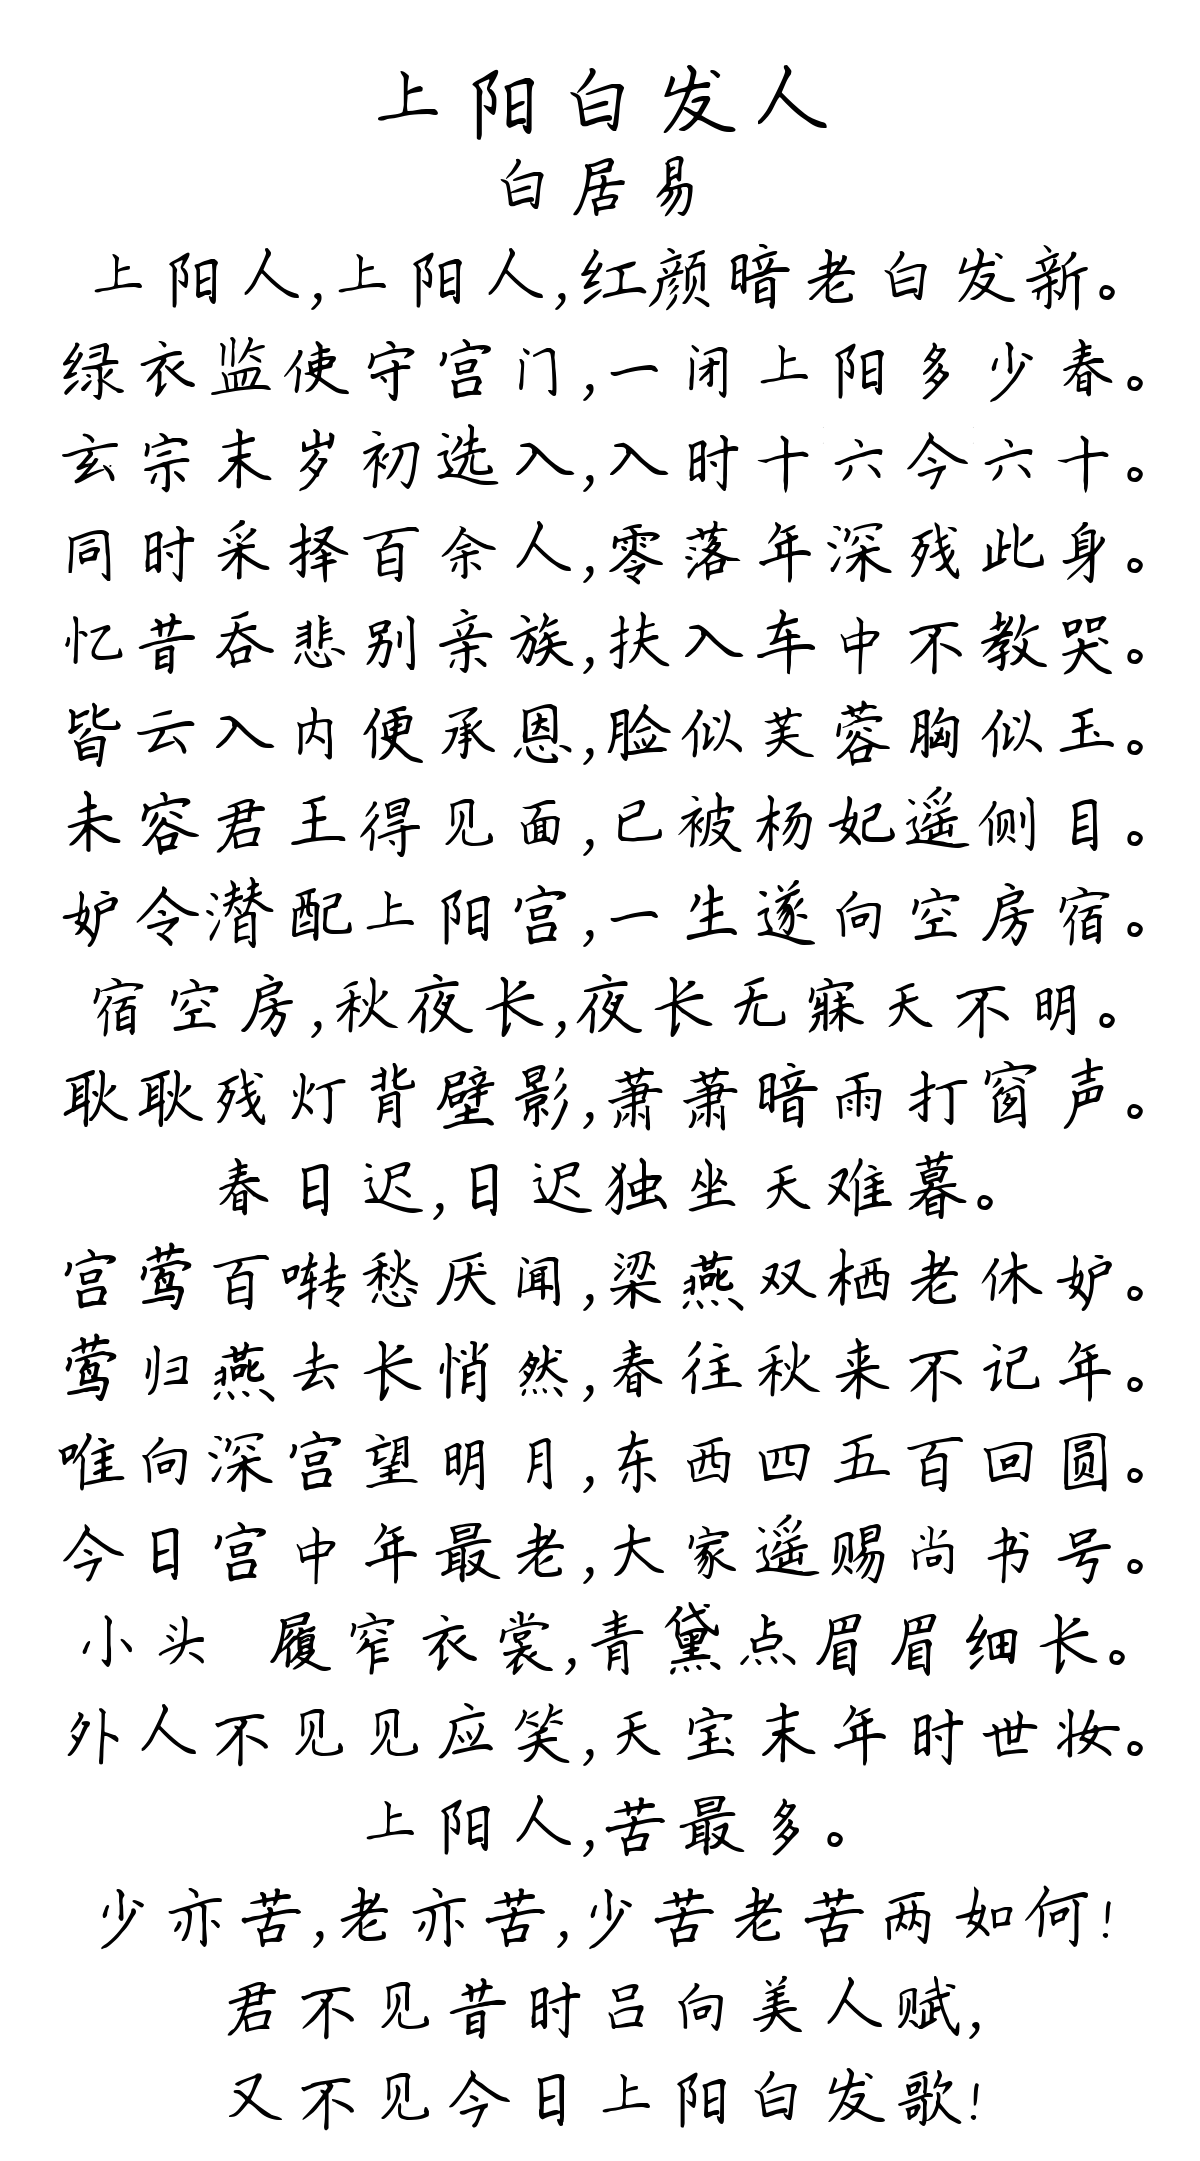 上阳白发人
白居易
上阳人,上阳人,红颜暗老白发新。
绿衣监使守宫门,一闭上阳多少春。
玄宗末岁初选入,入时十六今六十。
同时采择百余人,零落年深残此身。
忆昔吞悲别亲族,扶入车中不教哭。
皆云入内便承恩,脸似芙蓉胸似玉。
未容君王得见面,已被杨妃遥侧目。
妒令潜配上阳宫,一生遂向空房宿。
宿空房,秋夜长,夜长无寐天不明。
耿耿残灯背壁影,萧萧暗雨打窗声。
春日迟,日迟独坐天难暮。
宫莺百啭愁厌闻,梁燕双栖老休妒。
莺归燕去长悄然,春往秋来不记年。
唯向深宫望明月,东西四五百回圆。
今日宫中年最老,大家遥赐尚书号。
小头 履窄衣裳,青黛点眉眉细长。
外人不见见应笑,天宝末年时世妆。
上阳人,苦最多。
少亦苦,老亦苦,少苦老苦两如何!
君不见昔时吕向美人赋,
又不见今日上阳白发歌!